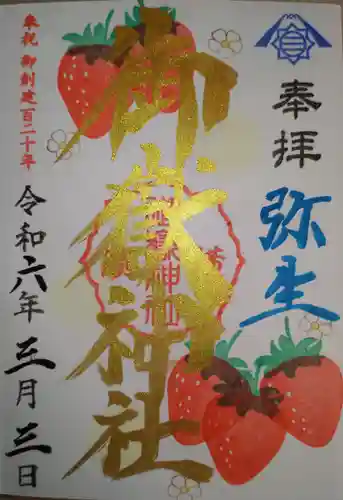 奉拝
弥生
御嶽神社
奉祝 御創建百二十年
令和六年三月三日